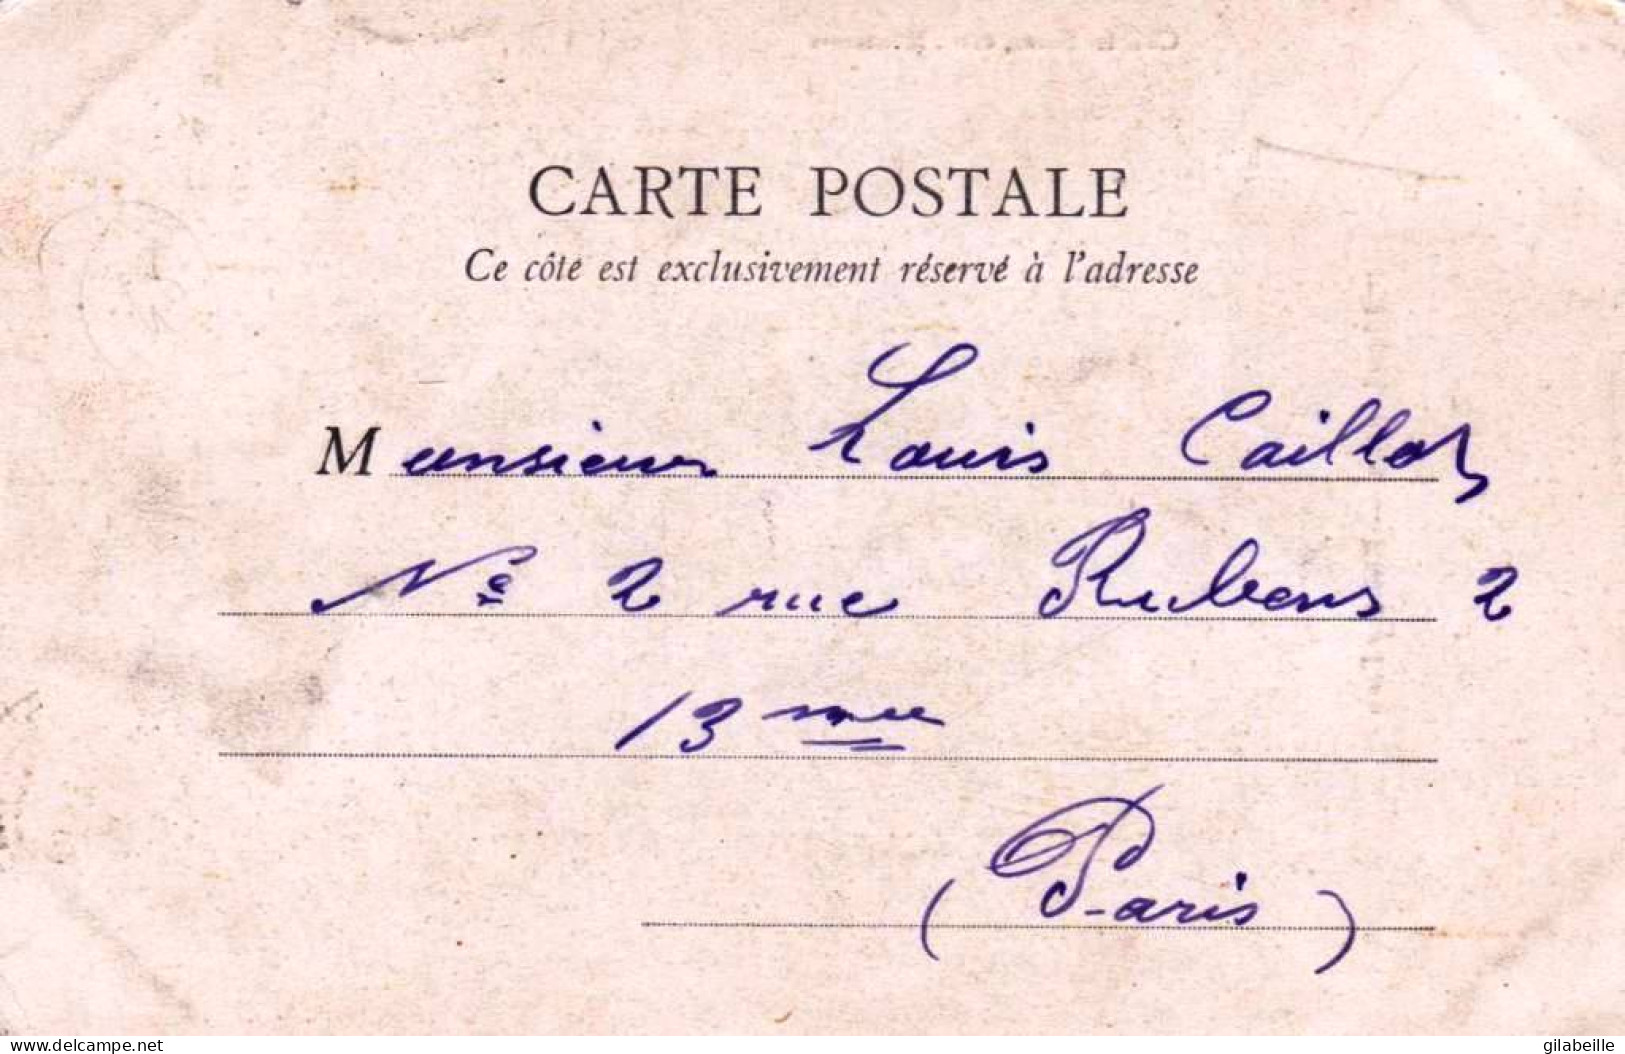 CARTE POSTALE
Ce côté est exclusivement réservé à l'adresse
Monsieur Louis Caillot
No 2 rue Rubens 2
13me
(Paris)
delcampe.net
gilabeille